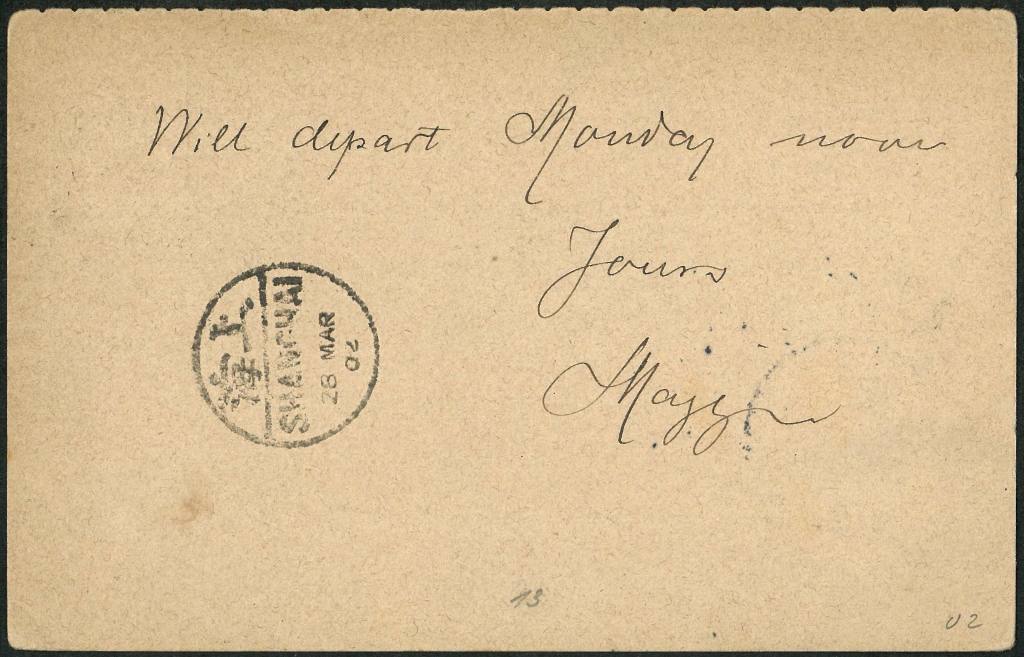 Will depart Monday noon
Yours
上海
SHANGHAI
28 MAR
02
13
02